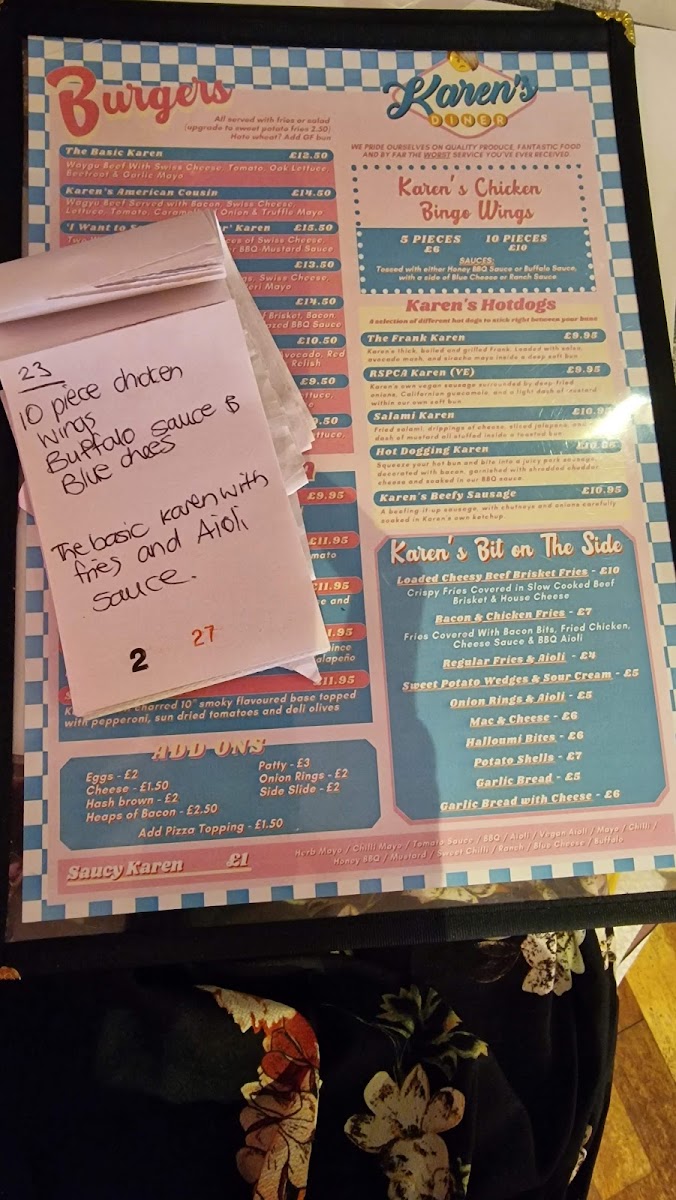 Burgers
All served with fries or salad
(upgrade to sweet potato fries 2.50)
Hate wheat? Add GF bun
The Basic Karen £12.50
Wagyu Beef With Swiss Cheese, Tomato, Oak Lettuce,
Beetroot & Garlic Mayo
Karen's American Cousin £14.50
Wagyu Beef Served with Bacon, Swiss Cheese,
Lettuce, Tomato, Onion & Truffle Mayo
'I Want to Karen £15.50
of Swiss Cheese,
BBQ-Mustard Sauce
£13.50
Swiss Cheese,
Mayo
£14.50
Brisket, Bacon,
BBQ Sauce
£10.50
Avocado, Red
Relish
£9.50
£9.95
£11.95
£11.95
and
£11.95
with pepperoni, sun dried tomatoes and deli olives
charred 10" smoky flavoured base topped
23
10 piece chicken
wings
Buffalo sauce &
Blue chees
The basic Karen with
fries and Aioli
sauce.
2 27
ADD ONS
Eggs - £2
Cheese - £1.50
Hash brown - £2
Heaps of Bacon - £2.50
Patty - £3
Onion Rings - £2
Side Slide - £2
Add Pizza Topping - £1.50
Saucy Karen £1
Herb Mayo / Chilli Mayo / Tomato Sauce / BBQ / Aioli / Vegan Aioli / Mayo / Chilli /
Honey BBQ / Mustard / Sweet Chilli / Ranch / Blue Cheese / Buffalo
Karen's
DINER
WE PRIDE OURSELVES ON QUALITY PRODUCE, FANTASTIC FOOD
AND BY FAR THE WORST SERVICE YOU'VE EVER RECEIVED
Karen's Chicken
Bingo Wings
5 PIECES 10 PIECES
£6 £10
SAUCES:
Tossed with either Honey BBQ Sauce or Buffalo Sauce,
with a side of Blue Cheese or Ranch Sauce
Karen's Hotdogs
A selection of different hot dogs to stick right between your buns
The Frank Karen £9.95
Karen's thick, boiled and grilled Frank. Loaded with salsa,
avocado mash, and siracha mayo inside a deep soft bun
RSPCA Karen (VE) £9.95
Karen's own vegan sausage surrounded by deep-fried
onions, Californian guacamole, and a light dash of mustard
within our own soft bun
Salami Karen £10.95
Fried salami, drippings of cheese, sliced jalapeno, and a
dash of mustard all stuffed inside a toasted bun
Hot Dogging Karen
Squeeze your hot bun and bite into a juicy pork sausage,
decorated with bacon, garnished with shredded cheddar
cheese and soaked in our BBQ sauce
Karen's Beefy Sausage £10.95
A beefing-it-up sausage, with chutneys and onions carefully
soaked in Karen's own ketchup
Karen's Bit on The Side
Loaded Cheesy Beef Brisket Fries - £10
Crispy Fries Covered in Slow Cooked Beef
Brisket & House Cheese
Bacon & Chicken Fries - £7
Fries Covered With Bacon Bits, Fried Chicken,
Cheese Sauce & BBQ Aioli
Regular Fries & Aioli - £4
Sweet Potato Wedges & Sour Cream - £5
Onion Rings & Aioli - £5
Mac & Cheese - £6
Halloumi Bites - £6
Potato Shells - £7
Garlic Bread - £5
Garlic Bread with Cheese - £6